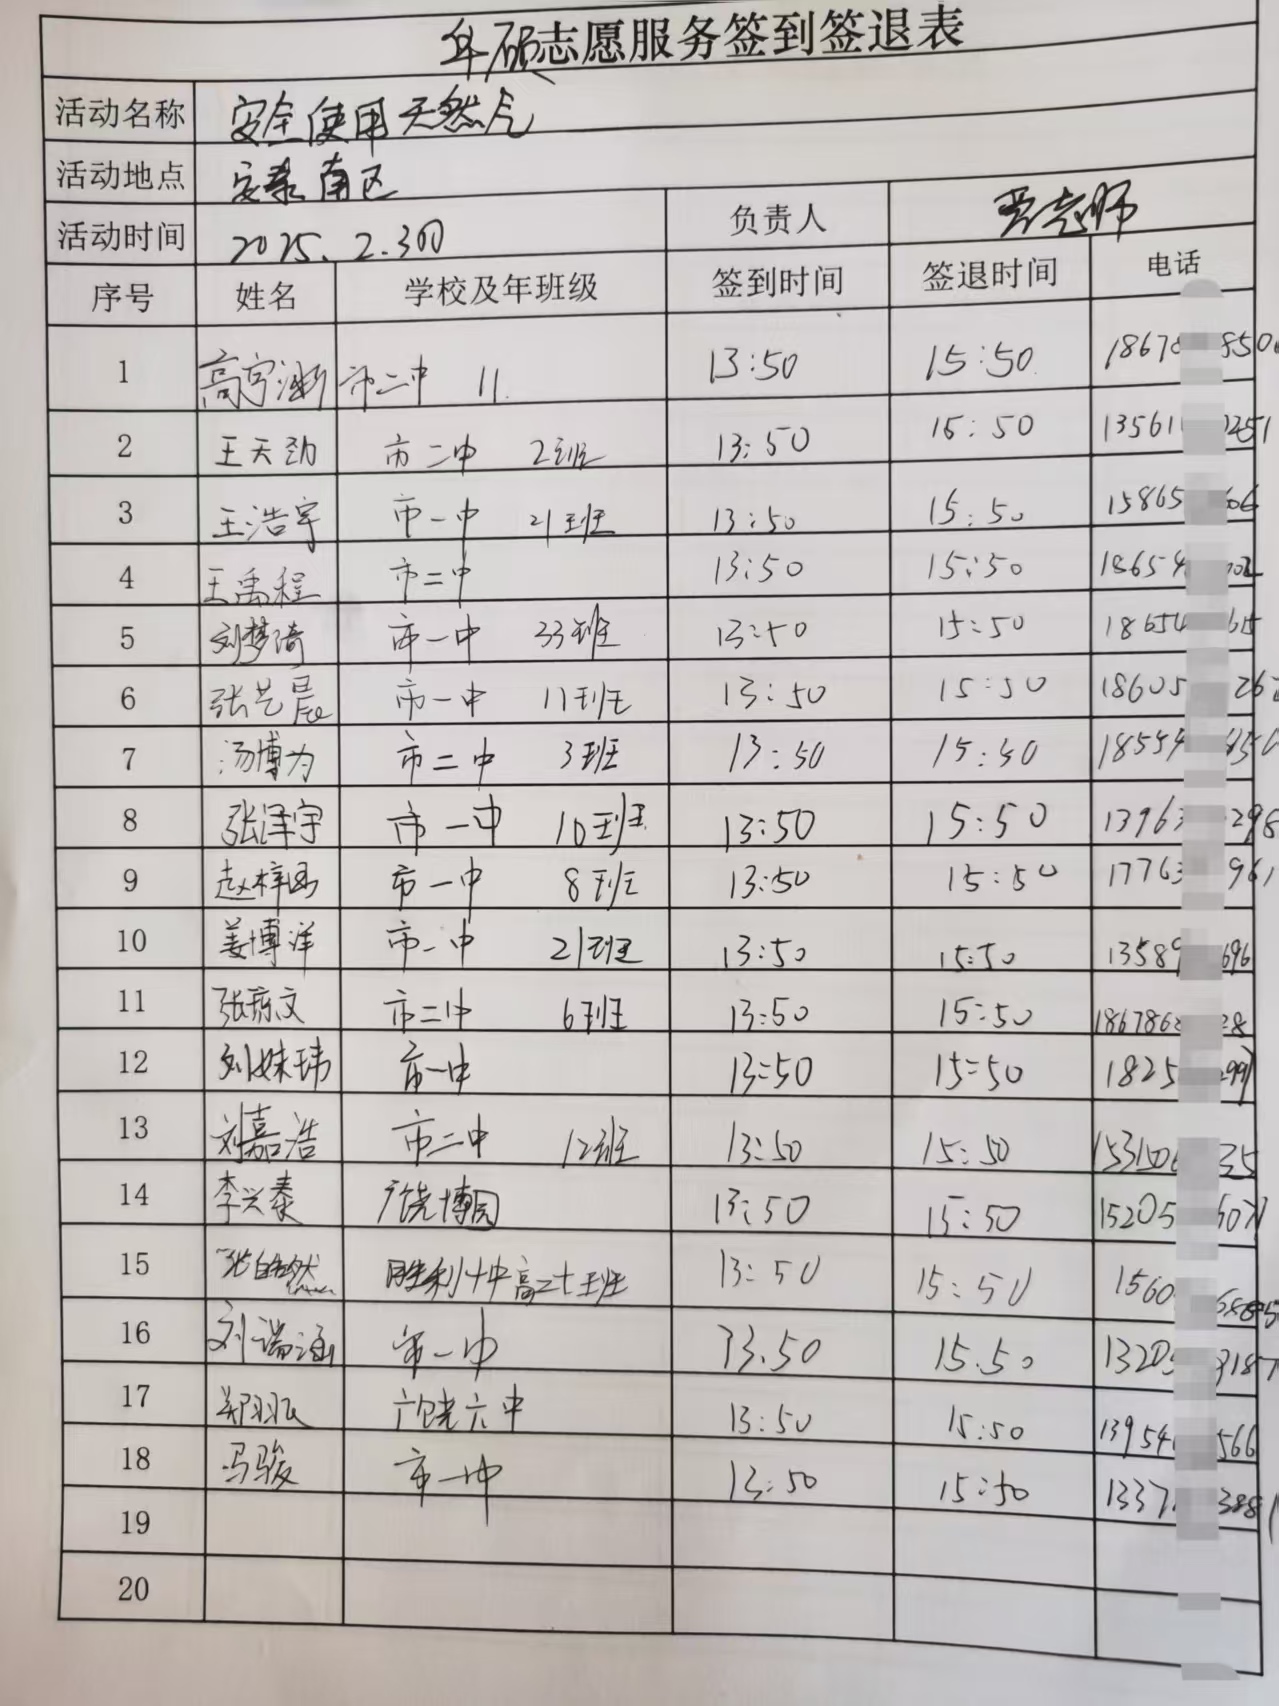 志愿服务签到签退表
活动名称 安全使用天然气
活动地点 安泰南区
活动时间 2025.2.3 负责人 老师
序号 姓名 学校及年班级 签到时间 签退时间 电话
1 高宇 市二中 11 13:50 15:50 1867 850
2 王天劲 市二中 2班 13:50 15:50 13561 0251
3 王浩宇 市一中 21班 13:50 15:50 15865 606
4 王禹程 市二中 13:50 15:50 18654 02
5 刘梦琦 市一中 33班 13:50 15:50 18654 615
6 张艺晨 市一中 11班 13:50 15:50 18605 26
7 汤博为 市二中 3班 13:50 15:50 18554
8 张泽宇 市一中 10班 13:50 15:50 13963 298
9 赵梓 市一中 8班 13:50 15:50 17763 961
10 姜博洋 市一中 21班 13:50 15:50 13589 696
11 张 文 市二中 6班 13:50 15:50 186786 28
12 刘姝玮 市一中 13:50 15:50 1825 299
13 刘嘉浩 市二中 12班 13:50 15:50 153150 35
14 李兴泰 广饶博园 13:50 15:50 15205 607
15 张皓然 胜利十中高二十班 13:50 15:50 1560 685
16 刘瑞涵 市一中 13.50 15.50 13205 3187
17 郑羽 广饶六中 13:50 15:50 13954 566
18 冯骏 市一中 13:50 15:50 1337 388
19
20